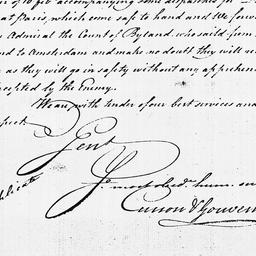 of 10 feb accompanying some dispatches for
at Paris, which came safe to hand and We forw
Admiral the Count of Byland who saild from
nd to Amsterdam and make no doubt they will
as they will go in safety without any apprehen
rcepted by the Enemy.
We are with tender of our best services and
spect
Gent
Yr most obedt. hum. se
Curson & Gouvern
plicate